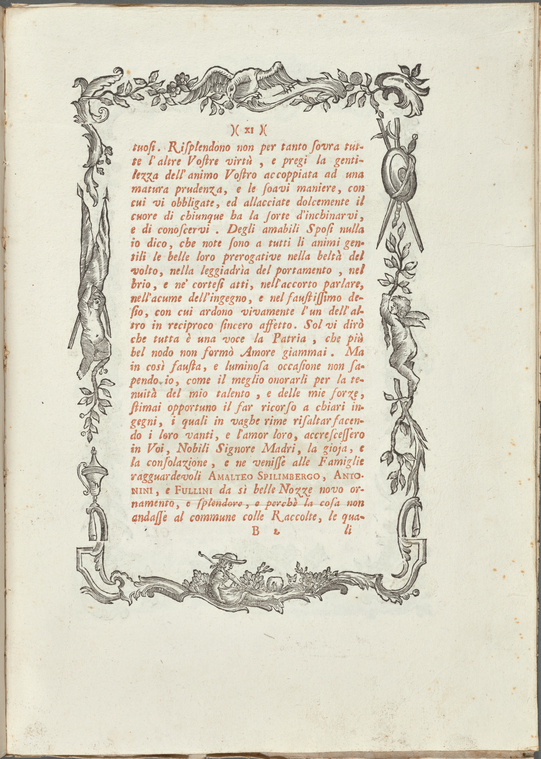 )( XI )(
tuosi. Risplendono non per tanto sovra tut-
te l'altre Vostre virtù, e pregi la genti-
lezza dell'animo Vostro accoppiata ad una
matura prudenza, e le soavi maniere, con
cui vi obbligate, ed allacciate dolcemente il
cuore di chiunque ha la sorte d'inchinarvi,
e di conoscervi. Degli amabili Sposi nulla
io dico, che note sono a tutti li animi gen-
tili le belle loro prerogative nella beltà del
volto, nella leggiadrìa del portamento, nel
brio, e ne' cortesi atti, nell'accorto parlare,
nell'acume dell'ingegno, e nel faustissimo de-
sio, con cui ardono vivamente l'un dell'al-
tro in reciproco sincero affetto. Sol vi dirò
che tutta è una voce la Patria, che più
bel nodo non formò Amore giammai. Ma
in così fausta, e luminosa occasione non sa-
pendo io, come il meglio onorarli per la te-
nuità del mio talento, e delle mie forze,
stimai opportuno il far ricorso a chiari in-
gegni, i quali in vaghe rime risaltar facen-
do i loro vanti, e l'amor loro, accrescessero
in Voi, Nobili Signore Madri, la gioja, e
la consolazione, e ne venisse alle Famiglie
ragguardevoli AMALTEO SPILIMBERGO, ANTO-
NINI, e FULLINI da sì belle Nozze novo or-
namento, e splendore, e perchè la cosa non
andasse al commune colle Raccolte, le qua-
B 2 li